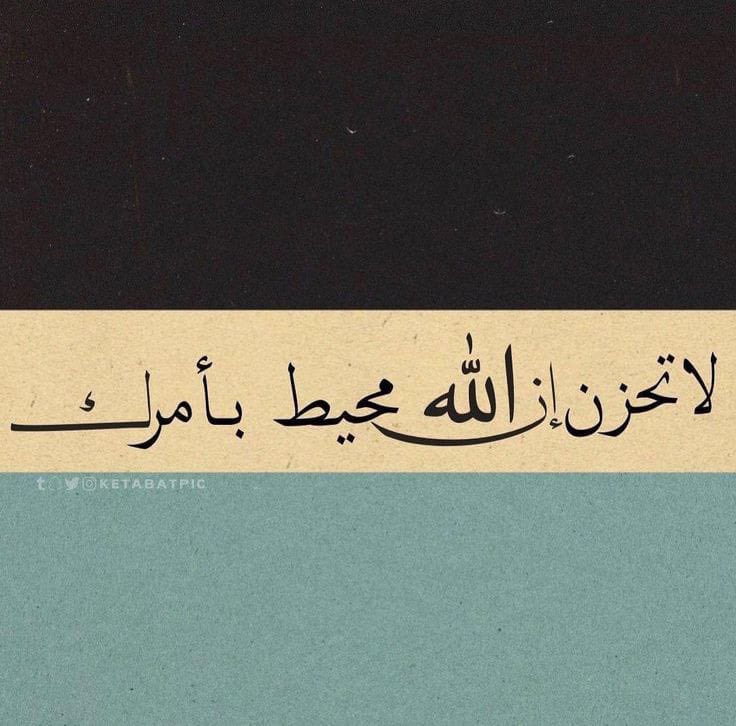 لا تحزن إن الله محيط بأمرك
KETABATPIC